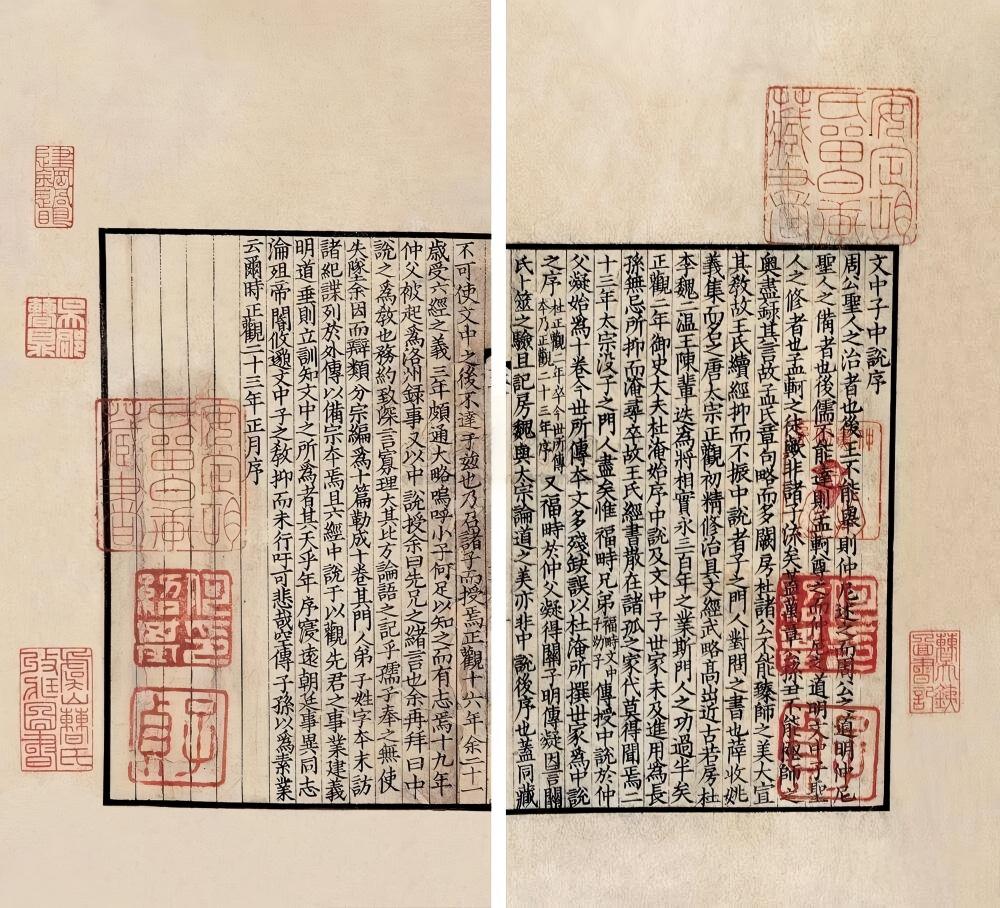 文中子中說序
周公聖人之治者也後王不能舉則仲尼述之而周公之道明仲尼
聖人之備者也後儒不能達則孟軻尊之而仲尼之道明文中子聖
人之修者也孟軻之徒歟非諸子流矣蓋萬章公孫丑不能極師之
奧盡録其言故孟氏章句略而多闕房杜諸公不能臻師之美大宣
其敎故王氏續經抑而不振中說者子之門人對問之書也薛收姚
義集而名之唐太宗正觀初精修治具文經武略高出近古若房杜
李魏二温王陳輩迭爲將相實永三百年之業斯門人之功過半矣
正觀二年御史大夫杜淹始序中說及文中子世家未及進用爲長
孫無忌所抑而淹尋卒故王氏經書散在諸孤之家代莫得聞焉二
十三年太宗没子之門人盡矣惟福畤兄弟福畤文中子幼子傳授中說於仲
父凝始爲十卷今世所傳本文多殘缺誤以杜淹所撰世家爲中說
之序杜正觀二年卒今世所傳本乃正觀二十三年序又福畤於仲父凝得關子明傳凝因言關
氏卜筮之驗且記房魏與太宗論道之美亦非中說後序也蓋同藏
不可使文中之後不達于兹也乃召諸子而授焉正觀十六年余二十一
歲受六經之義三年頗通大略嗚呼小子何足以知之而有志焉十九年
仲父被起爲洛州録事又以中說授余曰先兄之緒言也余再拜曰中
說之爲敎也務約致深言寡理大其比方論語之記乎孺子奉之無使
失墜余因而辯類分宗編爲十篇勒成十卷其門人弟子姓字本末訪
諸紀諜列於外傳以備宗本焉且六經中說于以觀先君之事業建義
明道垂則立訓知文中之所爲者其天乎年序寖遠朝廷事異同志
淪殂帝閽攸邈文中子之敎抑而未行吁可悲哉空傳子孫以爲素業
云爾時正觀二十三年正月序